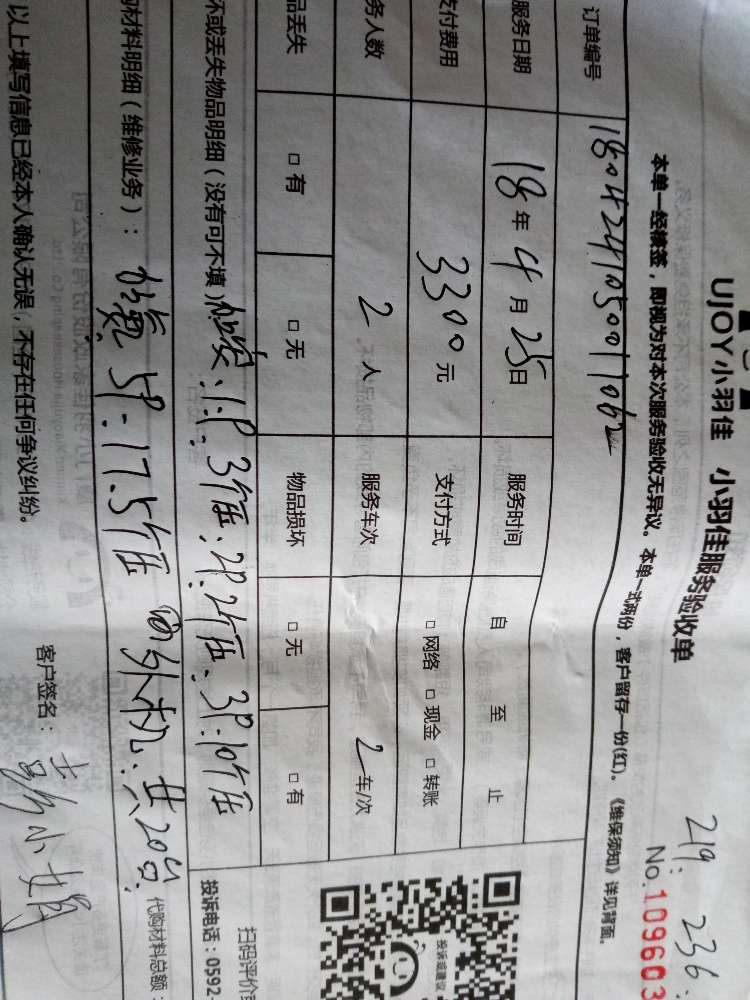 UJOY小羽佳 小羽佳服务验收单
219: 236:
No.109603
本单一经接签，即视为对本次服务验收无异议。本单一式两份，客户留存一份(红)。《维保须知》详见背面。
订单编号 180424105001062
服务日期 18年4月25日 服务时间 自 至 止
支付费用 3300元 支付方式 □ 网络 □ 现金 □ 转账
务人数 2人 服务车次 2车/次
品丢失 □ 有 □ 无 物品损坏 □ 无 □ 有
坏或丢失物品明细（没有可不填） 1P 3台 2P.2台 3P:10台
材料明细（维修业务）： 5P:17.5台 外机:共20台
代购材料总额：
以上填写信息已经本人确认无误，不存在任何争议纠纷。 客户签名：
投诉或建议
扫码评价
投诉电话：0592-